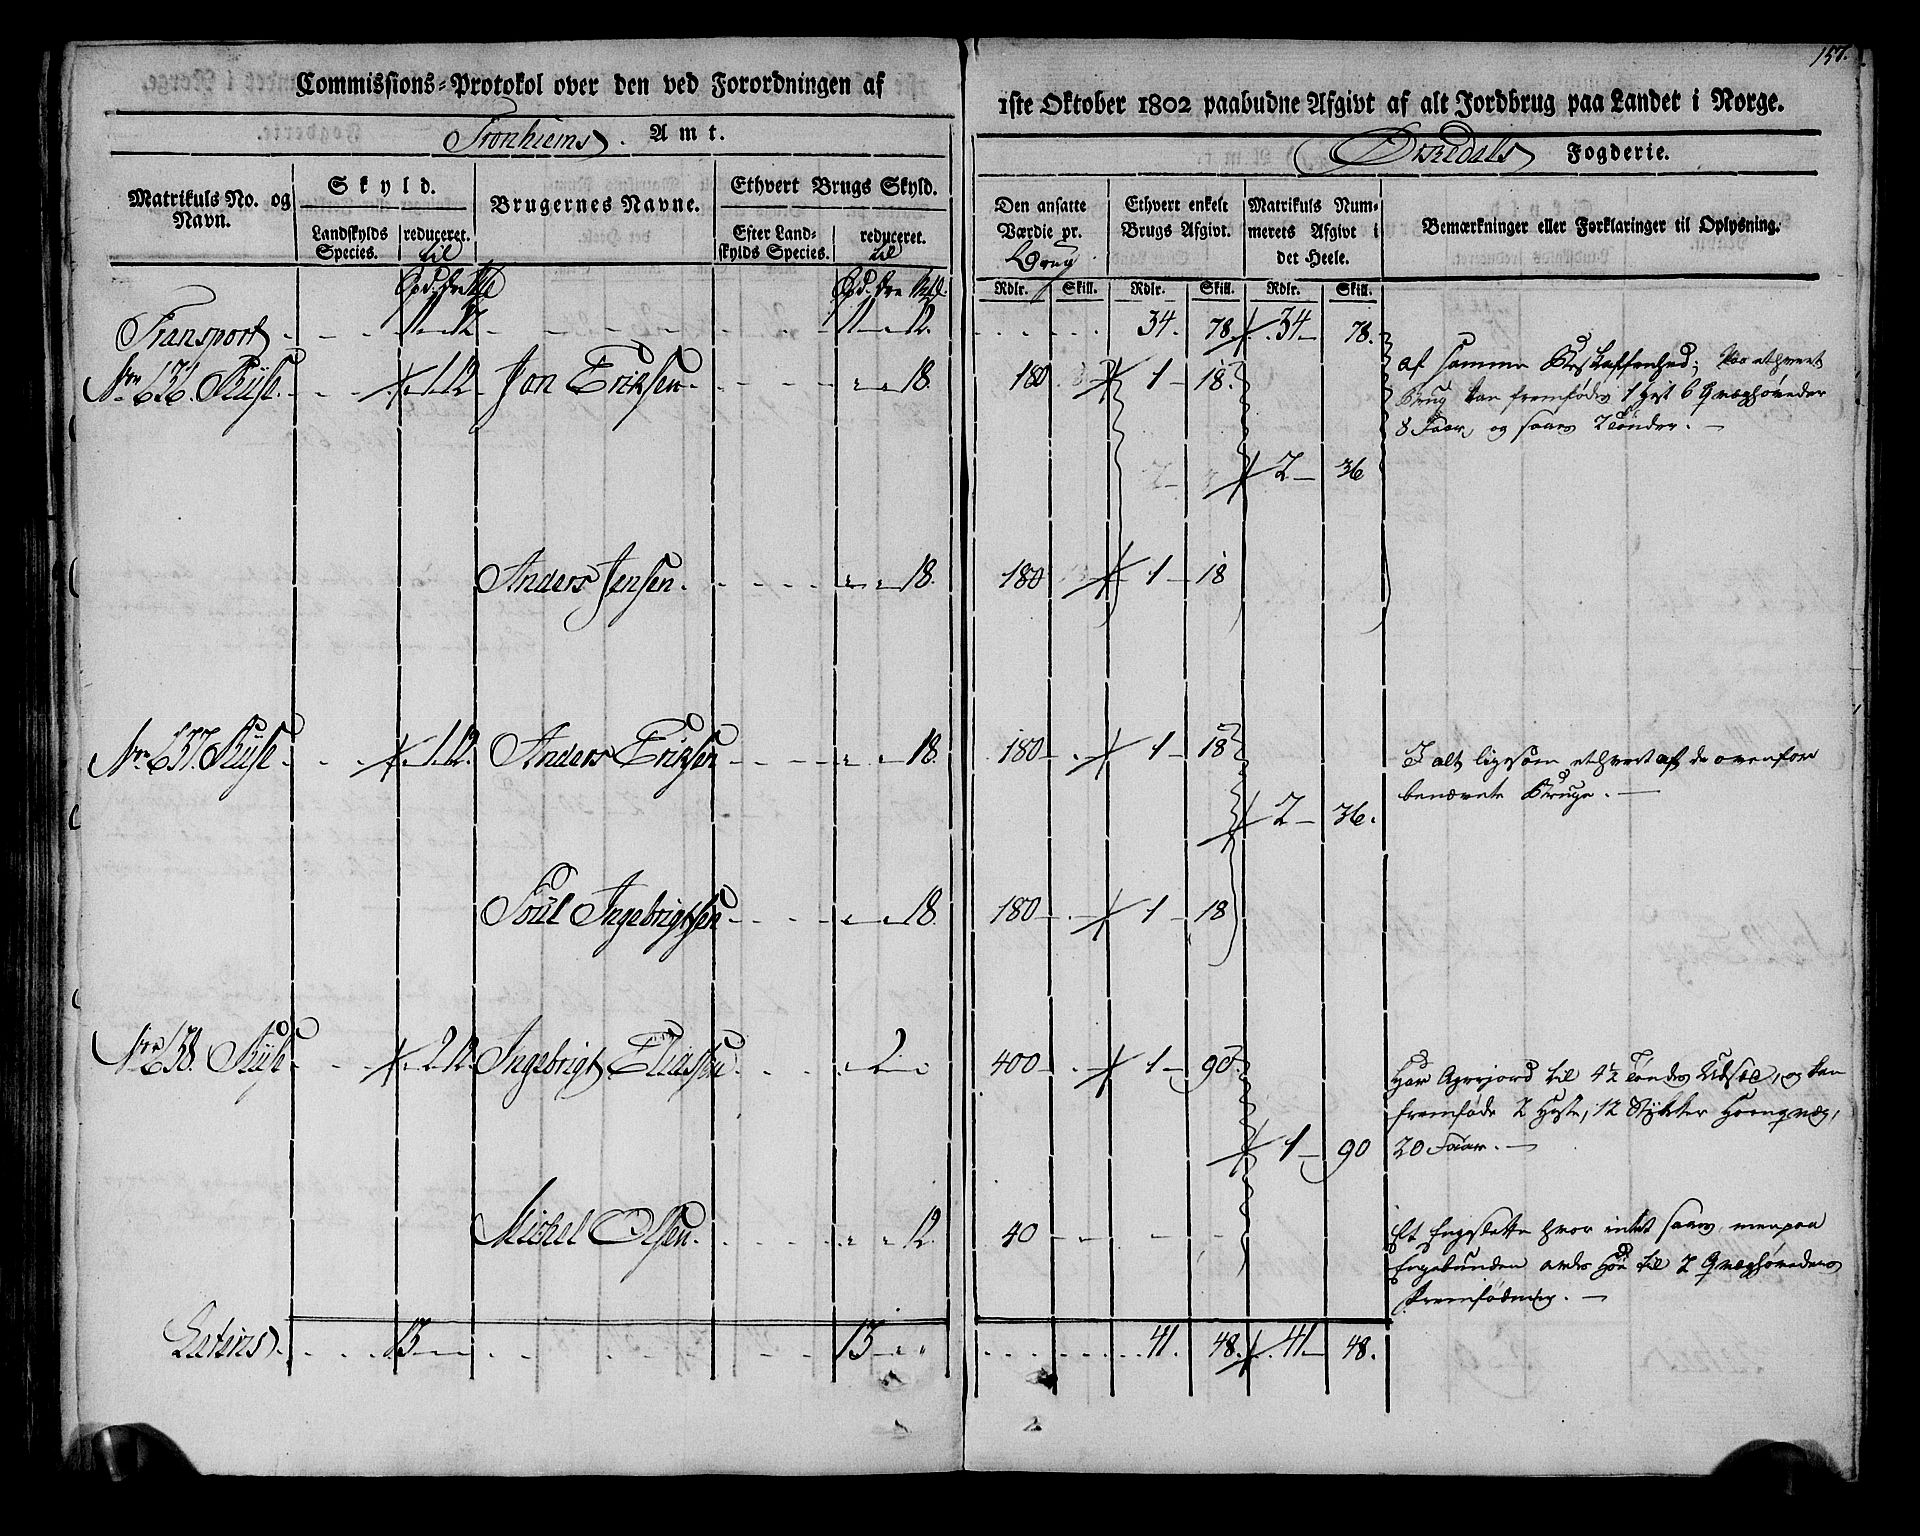 157.
Commissions-Protokol over den ved Forordningen af
1ste Oktober 1802 paabudne Afgivt af alt Jordbrug paa Landet i Norge.
Tronhiems Amt.
Fogderie.
Matrikuls No. og Navn.
Skyld.
Landskylds Species.
reduceret. til
Brugernes Navne.
Ethvert Brugs Skyld.
Efter Landskylds Species.
reduceret. til
Den ansatte Værdie pr. Brug
Ethvert enkelt Brugs Afgivt.
Matrikuls Nummerets Afgivt i det Heele.
Bemærkninger eller Forklaringer til Oplysning.
Rdlr. Skill. Rdlr. Skill. Rdlr. Skill.
Transport 34. 78. 34 78.
Jon Eriksen 18. 180 1 18.
af samme Beskaffenhed; paa ethvert
Brug kan fremfødes 1 Hest 6 Qvæghøveder
8 Faar, og saaes 2 Tønder.
2 36
Anders Jensen 18. 180 1 18
Anders Eriksen 18. 180 1 18
I alt ligesom ethvert af de ovenfore
benævnte Bruge.
2 36.
Poul Ingebrigtsen 18. 180 1 18
Ingebrigt Eliassen 2 400 1 90.
Har Agerjord til 4½ Tønders Udsæd, og kan
fremføde 2 Heste, 12 Stykker Hornqvæg,
20 Faar.
1 90
Michel Olsen 12. 40
Et Engeslette hvor intet saaes, men paa
Engebunden avles Høe til 2 Qvæghøveders
Fremfødning.
Lateris 13 13 41. 48. 41 48.